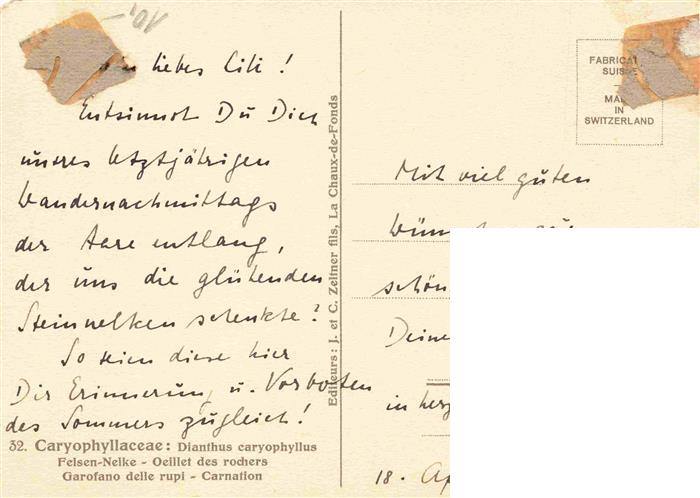 10,
liebes Cili!
Entsinnst Du Dich
unseres letztjährigen
Wandernachmittags
der Aare entlang,
der uns die glühenden
Steinnelken schenkte?
So seien diese hier
Dir Erinnerung u. Vorboten
des Sommers zugleich!
32. Caryophyllaceae: Dianthus caryophyllus
Felsen-Nelke - Oeillet des rochers
Garofano delle rupi - Carnation
Editeurs: J. et C. Zeltner fils, La Chaux-de-Fonds
FABRICAT
SUISSE
MADE
IN
SWITZERLAND
Mit viel guten
schön
Deine
in herz
18. Ap